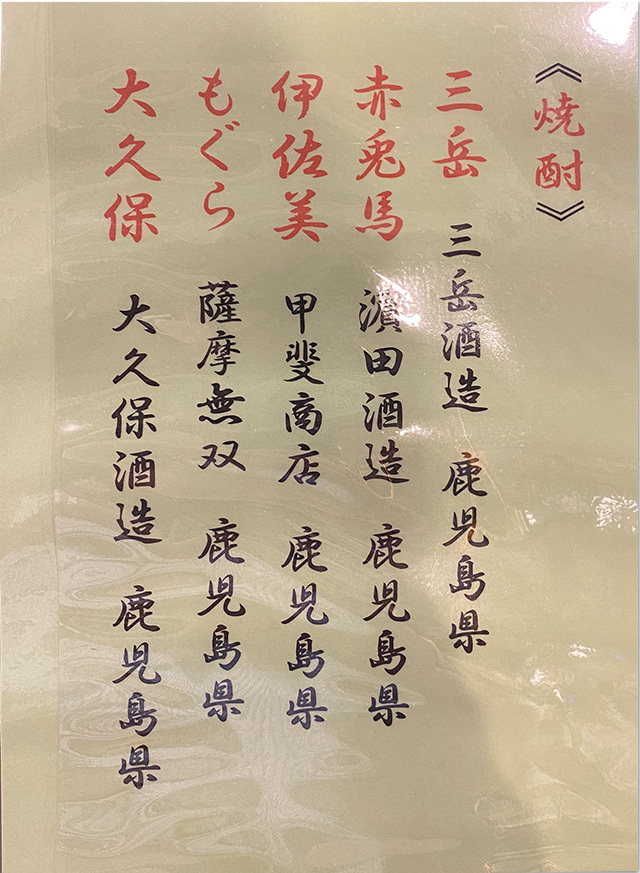 《焼酎》
三岳 三岳酒造 鹿児島県
赤兎馬 濵田酒造 鹿児島県
伊佐美 甲斐商店 鹿児島県
もぐら 薩摩無双 鹿児島県
大久保 大久保酒造 鹿児島県